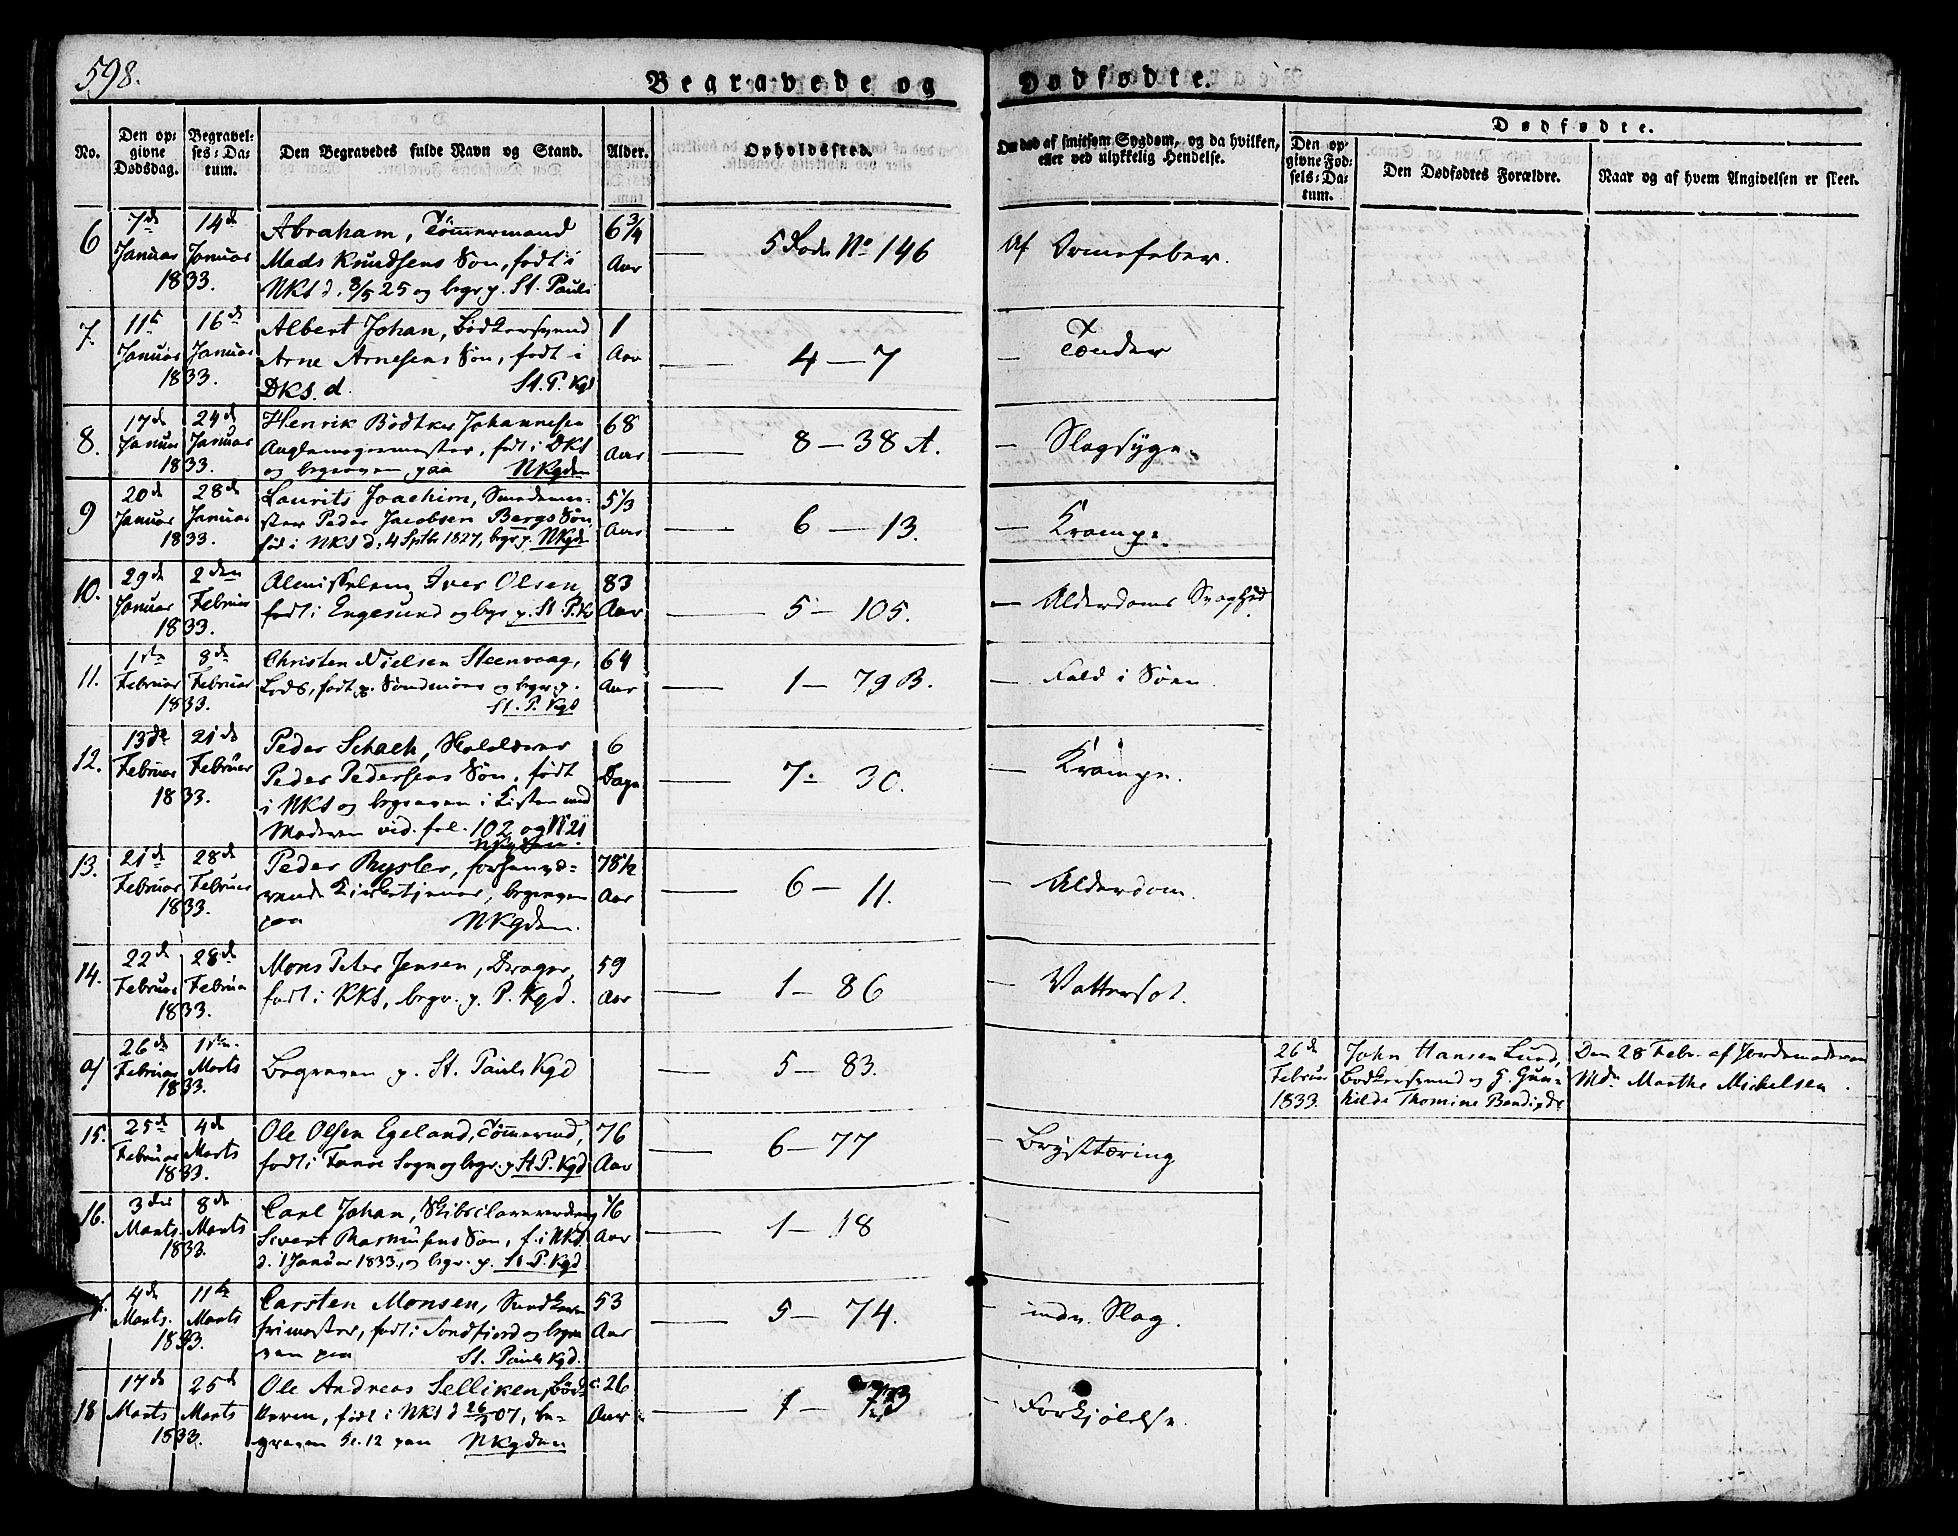 598.
Begravede og Dødfødte.
No.
Den opgivne Dødsdag.
Begravelses-Datum.
Den Begravedes fulde Navn og Stand.
Alder.
Opholdssted.
Om død af smitsom Sygdom, og da hvilken, eller ved ulykkelig Hendelse.
Dødfødte.
Den opgivne Fødsels-Datum.
Den Dødfødtes Forældre.
Naar og af hvem Angivelsen er skeet.
6 7de Januar 1833. 14de Januar
Abraham, Tömmermand
Mads Knudsens Søn, født i
NKS d. 8/5 25 og begr. p. St. Pauls
6 3/4 Aar
5 Rode No 146
Af Ormefeber.
7. 11te Januar 1833. 16de Januar
Albert Johan, Bødkersvend
Arne Arnesens Søn, født i
DKS. d. St. P. Kgd
1 Aar
4 — 7
— Tænder
8. 17de Januar 1833. 24de Januar
Henrik Bødtker Johannesen
født i DKS
og begraven paa NKgden
68 Aar
8 — 38 A.
— Slagsyge.
9 20de Januar 1833. 28de Januar
Laurits Joachim, Smedeme-
ster Peder Jacobsen Bergs Søn,
fød i NKS d. 4 Septbr 1827, begr. p. NKgden
5 1/3 Aar
6 — 13.
— Krampe.
10. 29de Januar 1833. 2den Februar
Almisselem Iver Olsen,
født i Engesund og begr. p. St. P. K
83 Aar
5 — 105.
— Alderdoms Svaghed
11. 1ste Februar 1833. 8de Februar
Christen Nielsen Steenvaag,
Lods, født p. Søndmøer og begr. p.
St. P. Kgd
64 Aar
1 — 79 B.
— Fald i Søen.
12. 13de Februar 1833. 21de Februar
Peder Schach,
Peder Pedersens Søn, født
i NKS og begraven i Kisten med
Moderen vid. fol. 102 og N 21
NKgden.
6 Dage
7 — 30.
— Krampe.
13. 21de Februar 1833. 28de Februar
Peder Rysler, forhenvæ-
rende Kirketjener, begraven
paa NKgden.
78 1/2 Aar
6 — 11.
— Alderdom.
14. 22de Februar 1833. 28de Februar
Mons Peter Jensen, Drager,
født i KKS, begr. p. P. Kgd.
59 Aar
1 — 86
— Vattersot.
a) 26de Februar 1833. 1ste Marts
Begraven p. St. Pauls Kgd
5 — 83.
26de Februar 1833.
John Hansen Lund,
Bødkersvend og G. Gun-
hilde Thomine Bendigds
Den 28 Febr. af Jordemoderen
Md. Marthe Michelsen.
15. 25de Februar 1833. 4de Marts
Ole Olsen Egeland, Tömermd,
født i Fanøe Sogn og begr. p. St. P. Kgd
76 Aar
6 — 77
— Brysttæring
16. 3die Marts. 1833. 8de Marts
Carl Johan,
Sivert Rasmusens Søn, f. i NKS.
d. 1 Januar 1833. og begr. p. St. P. Kgd
1/6 Aar
1 — 18
—
4de Marts. 1833. 11te Marts
Carsten Monsen,
født i Søndfjord og begra-
ven paa St. Pauls Kgd.
53 Aar
5 — 74.
— indv. Slag.
18 17de Marts 1833. 25de Marts
Ole Andreas Selliken, Bød-
født i NKS d 07, be-
graven Kl. 12 paa NKgden
26 Aar
1 — 73
— Forkjølelse.